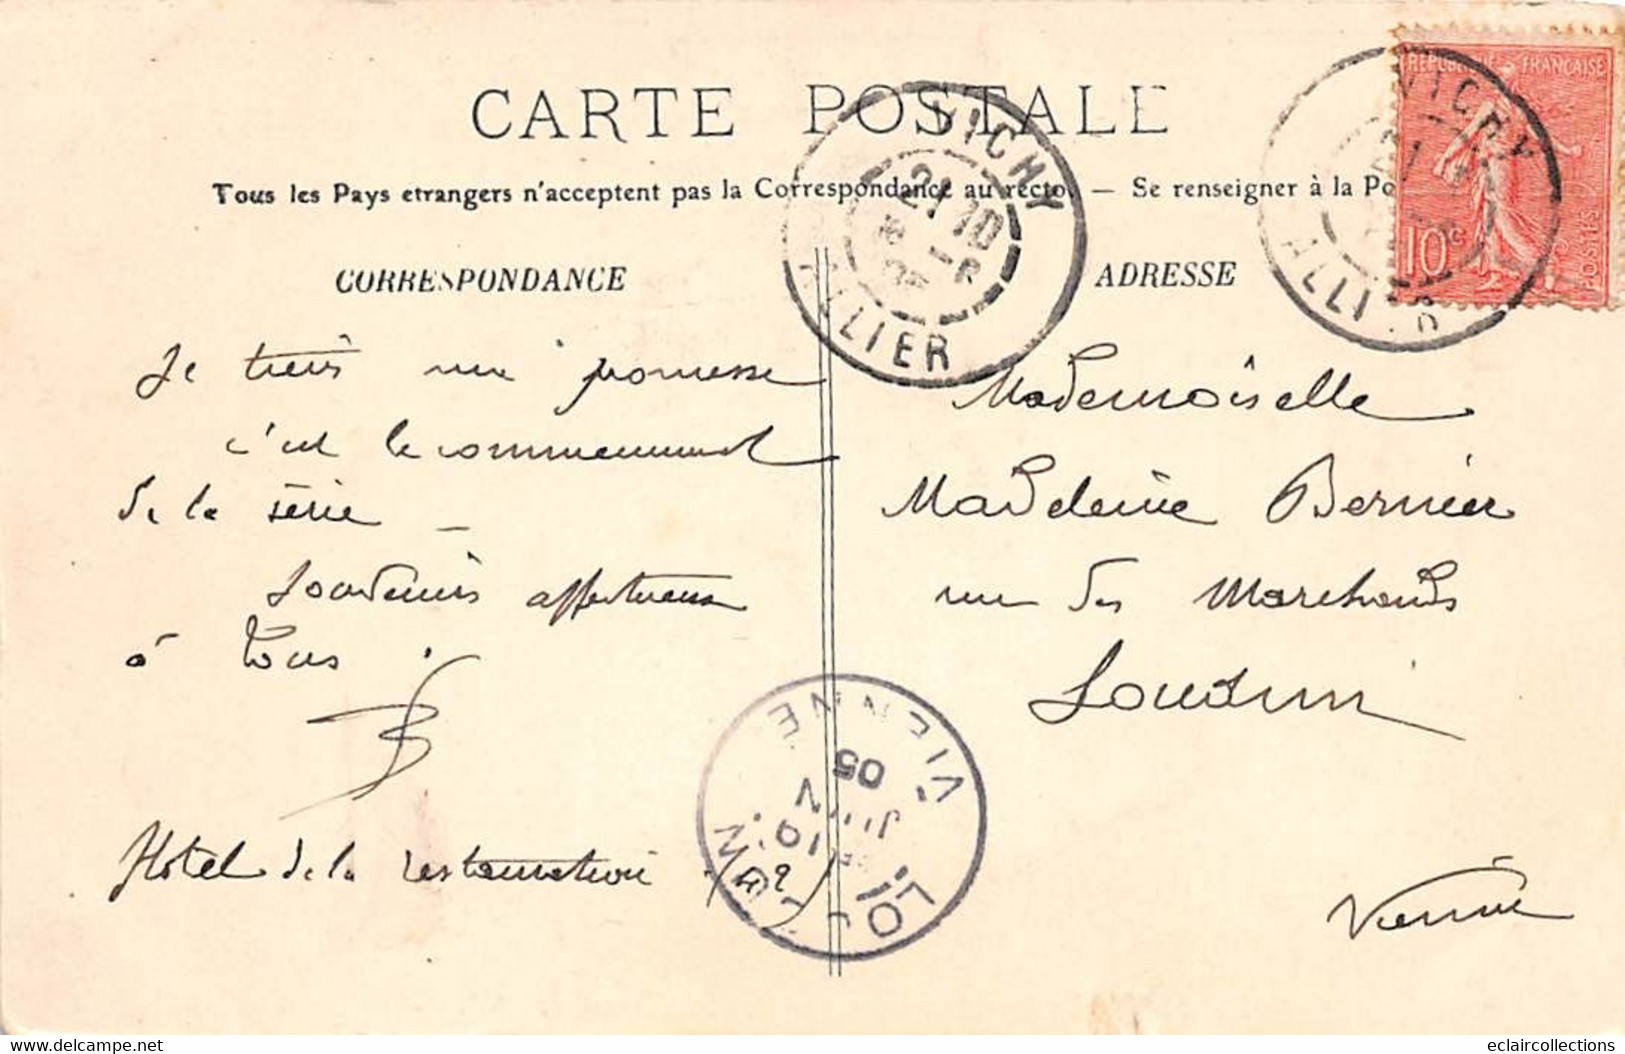 CARTE POSTALE
Tous les Pays etrangers n'acceptent pas la Correspondance au recto. — Se renseigner à la Po
CORRESPONDANCE
ADRESSE
VICHY
ALLIER
VICHY
ALLIER
REPUBLIQUE FRANÇAISE
10c
POSTES
Je tiens ma promesse
c'est le commencement
de la série _
Souvenirs affectueux
à tous.
Hotel de la restauration
Mademoiselle
Madeleine Bernier
rue des Marchands
Loudun
Vienne
LOUDUN
VIENNE
JUIN
05
www.delcampe.net
eclaircollections